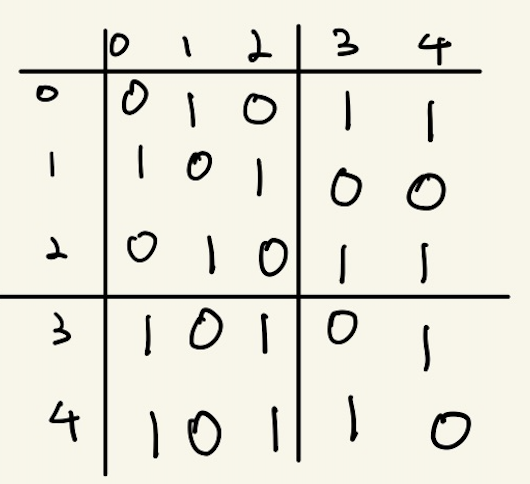 0 1 2 3 4
0 0 1 0 1 1
1 1 0 1 0 0
2 0 1 0 1 1
3 1 0 1 0 1
4 1 0 1 1 0